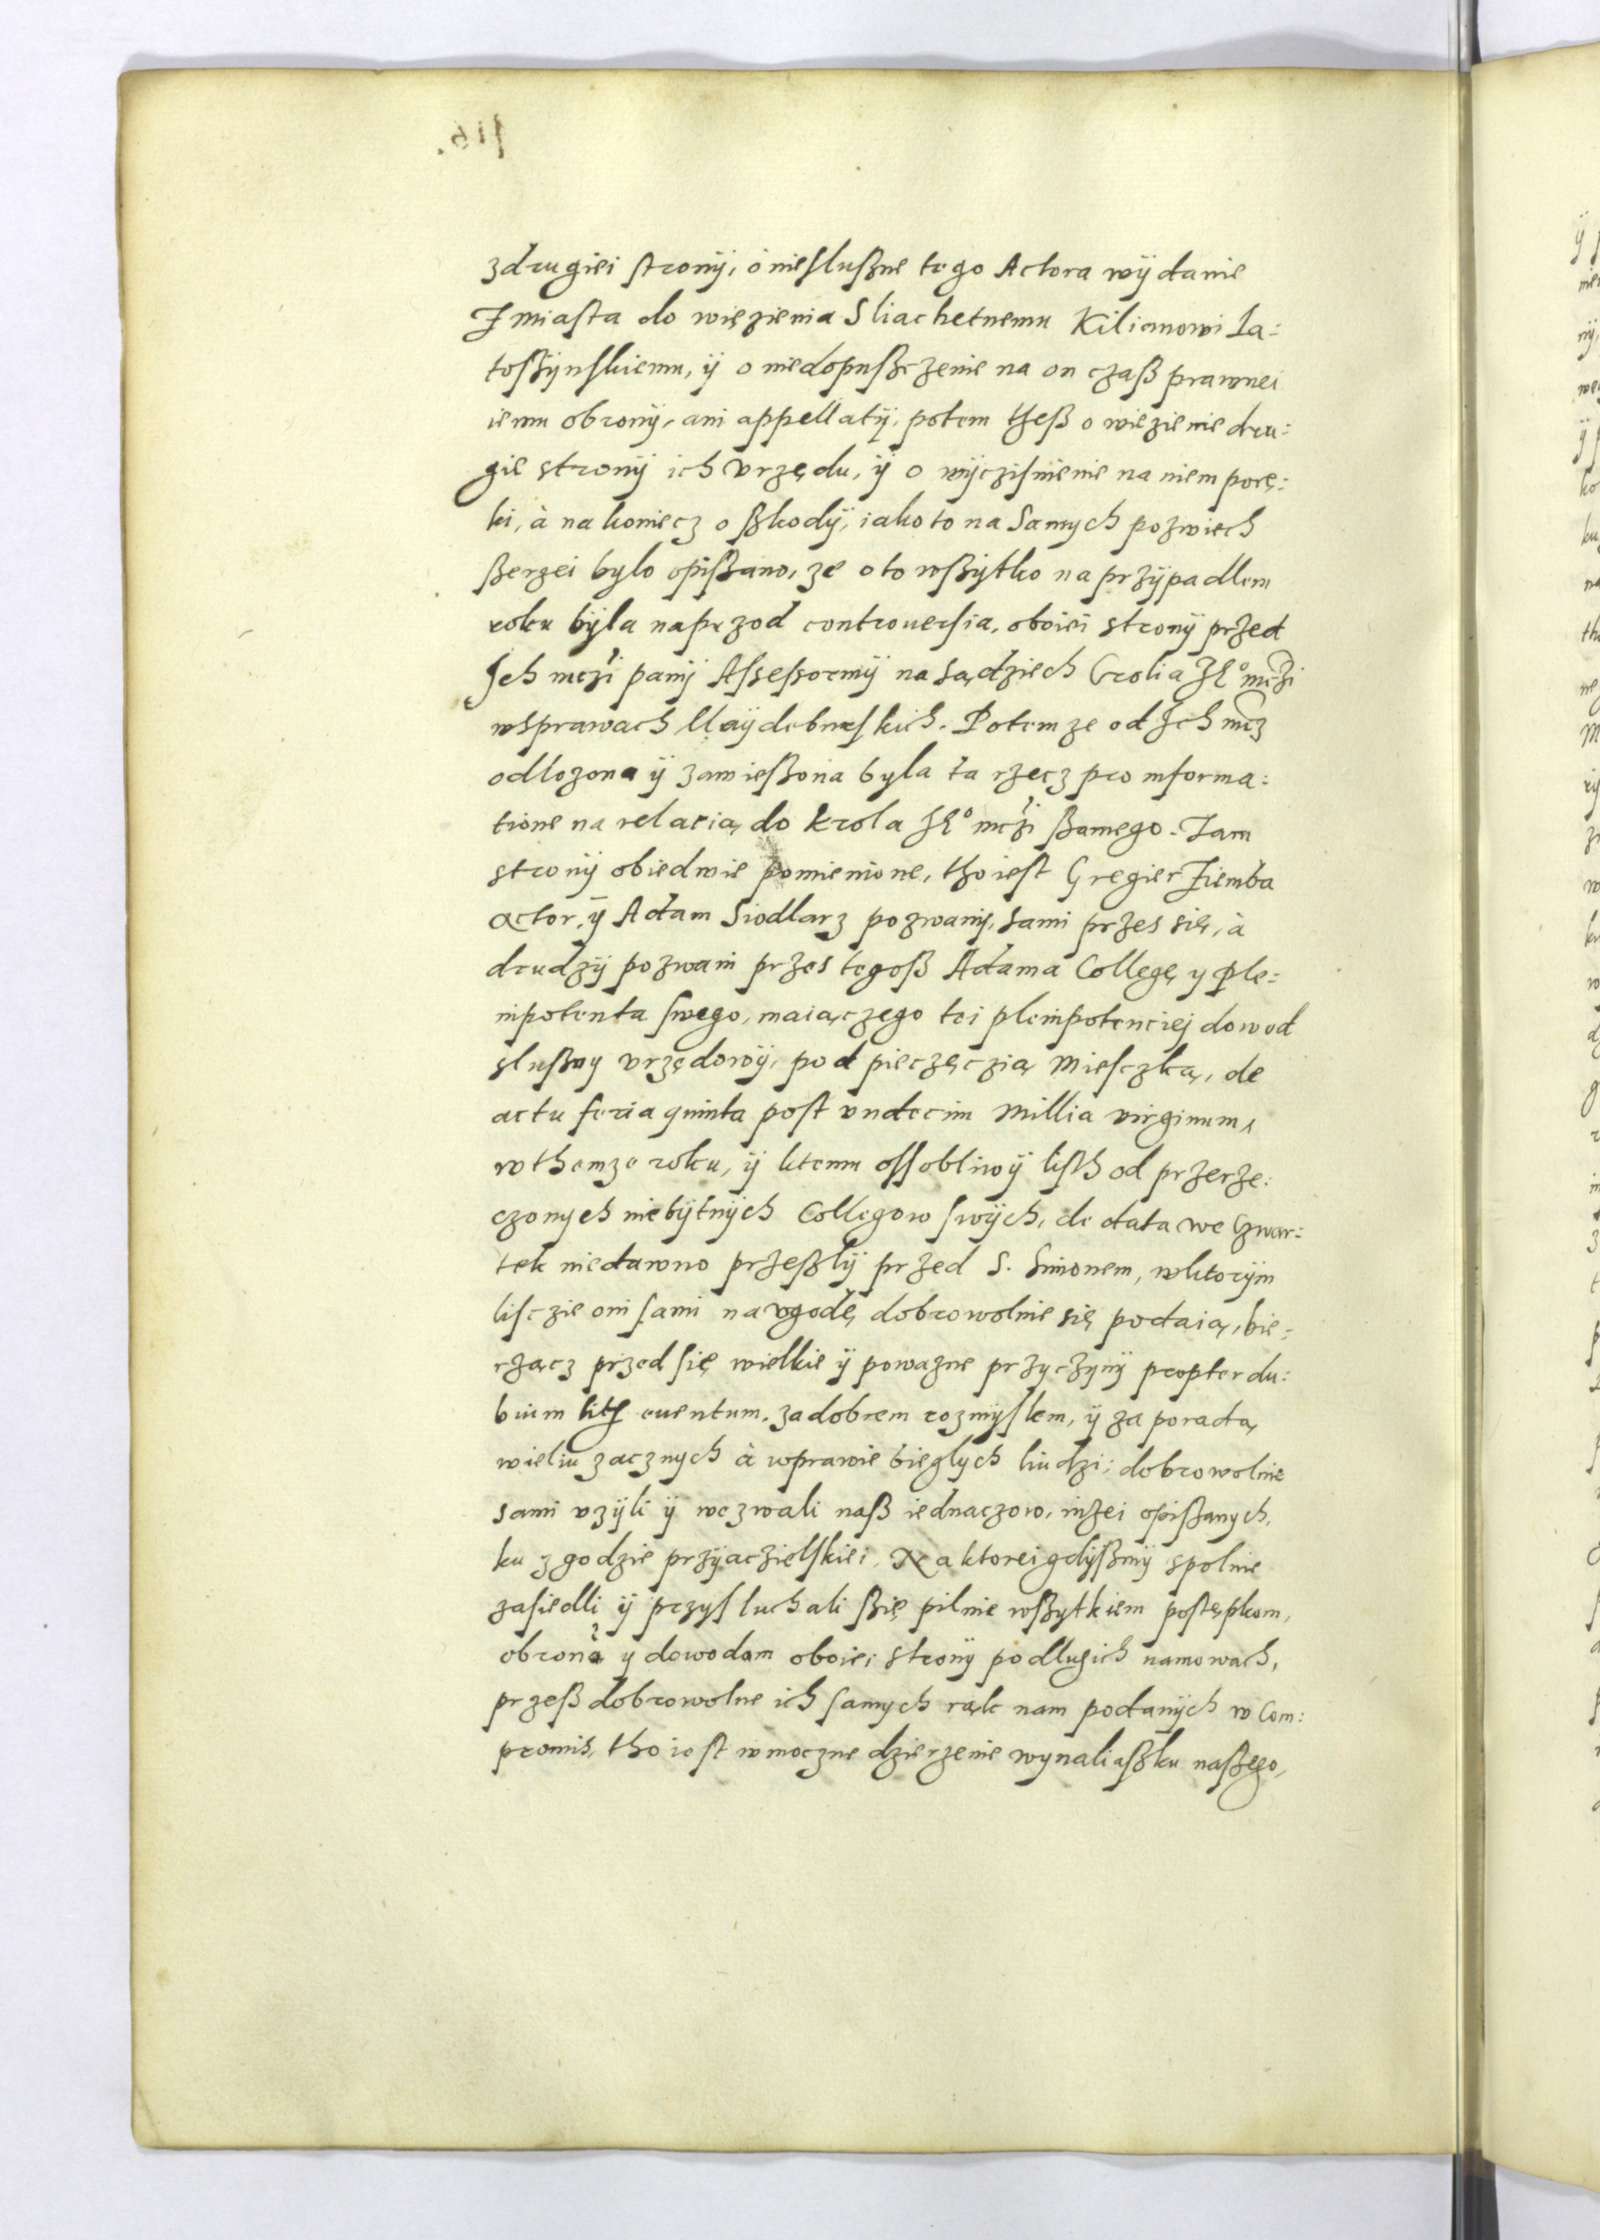 zdrugiei stronÿ, o niesluszne tego Actora wÿdanie
Z miasta do więzienia Sliachetnemu Kilianowi La:
toszÿnskiemu, ÿ o niedopuszczenie na on czasz prawnei
iemu obronÿ, ani appellatÿ, potem thesz o wiezienie dru:
gie stronÿ ich vrzędu, ÿ o wÿczisnienie na niem porę:
ki, à na koniecz o szkodÿ, iako to na Samych pozwiech
szerzei bylo opiszano, ze o to wszÿtko na przÿpadlem
roku bÿla naprzod controuersia, oboiei stronÿ przed
Ich mczi panÿ Assessormÿ na Sądziech Crolia JEº mczi
wsprawach Maÿdeburskich. Potem ze od Ich mcz
odlozona ÿ zawieszona byla ta rzecz pro informa:
tione na relacią do krola JEº mczi szamego. Tam
stronÿ obiedwie pomienione, tho iest Gregier Ziemba
Actor, ÿ Adam Siodlarz pozwanÿ, sami przes się, à
drudzÿ pozwani przes tegosz Adama Collegę y ple:
nipotenta swego, maiączego tei plenipotenciej dowod
sluszny vrzędowÿ, pod pieczęczią Miesczką, de
actu feria quinta post vndecim Millia virginum,
w themze roku, ÿ ktemu ossobliwÿ listh od przerze:
czonych niebÿtnÿch Collegow swÿch, de data we Czwar:
tek niedawno przeszlÿ przed S. Simonem, wktorÿm
lisczie oni sami na vgodę dobrowolnie się podaią, bie:
rzącz przed się wielkie ÿ powazne przyczynÿ propter du:
bium litis euentum, za dobrem rozmÿslem, ÿ za poradą
wieliu zacznych à wprawie bieglych liudzi, dobrowolnie
sami vzÿli ÿ wezwali nasz iednaczow, nizei opiszanych,
ku zgodzie przÿaczielskiei. Na ktorei gdÿszmÿ spolnie
zasiedli ÿ przysluchali szię pilnie wszytkiem postępkom,
obronà y dowodom oboiei stronÿ po dlugich namowach,
przesz dobrowolne ich samych ręk nam podanÿch w Com:
promis, tho iest w moczne dzierzenie wynaliaszku naszego,